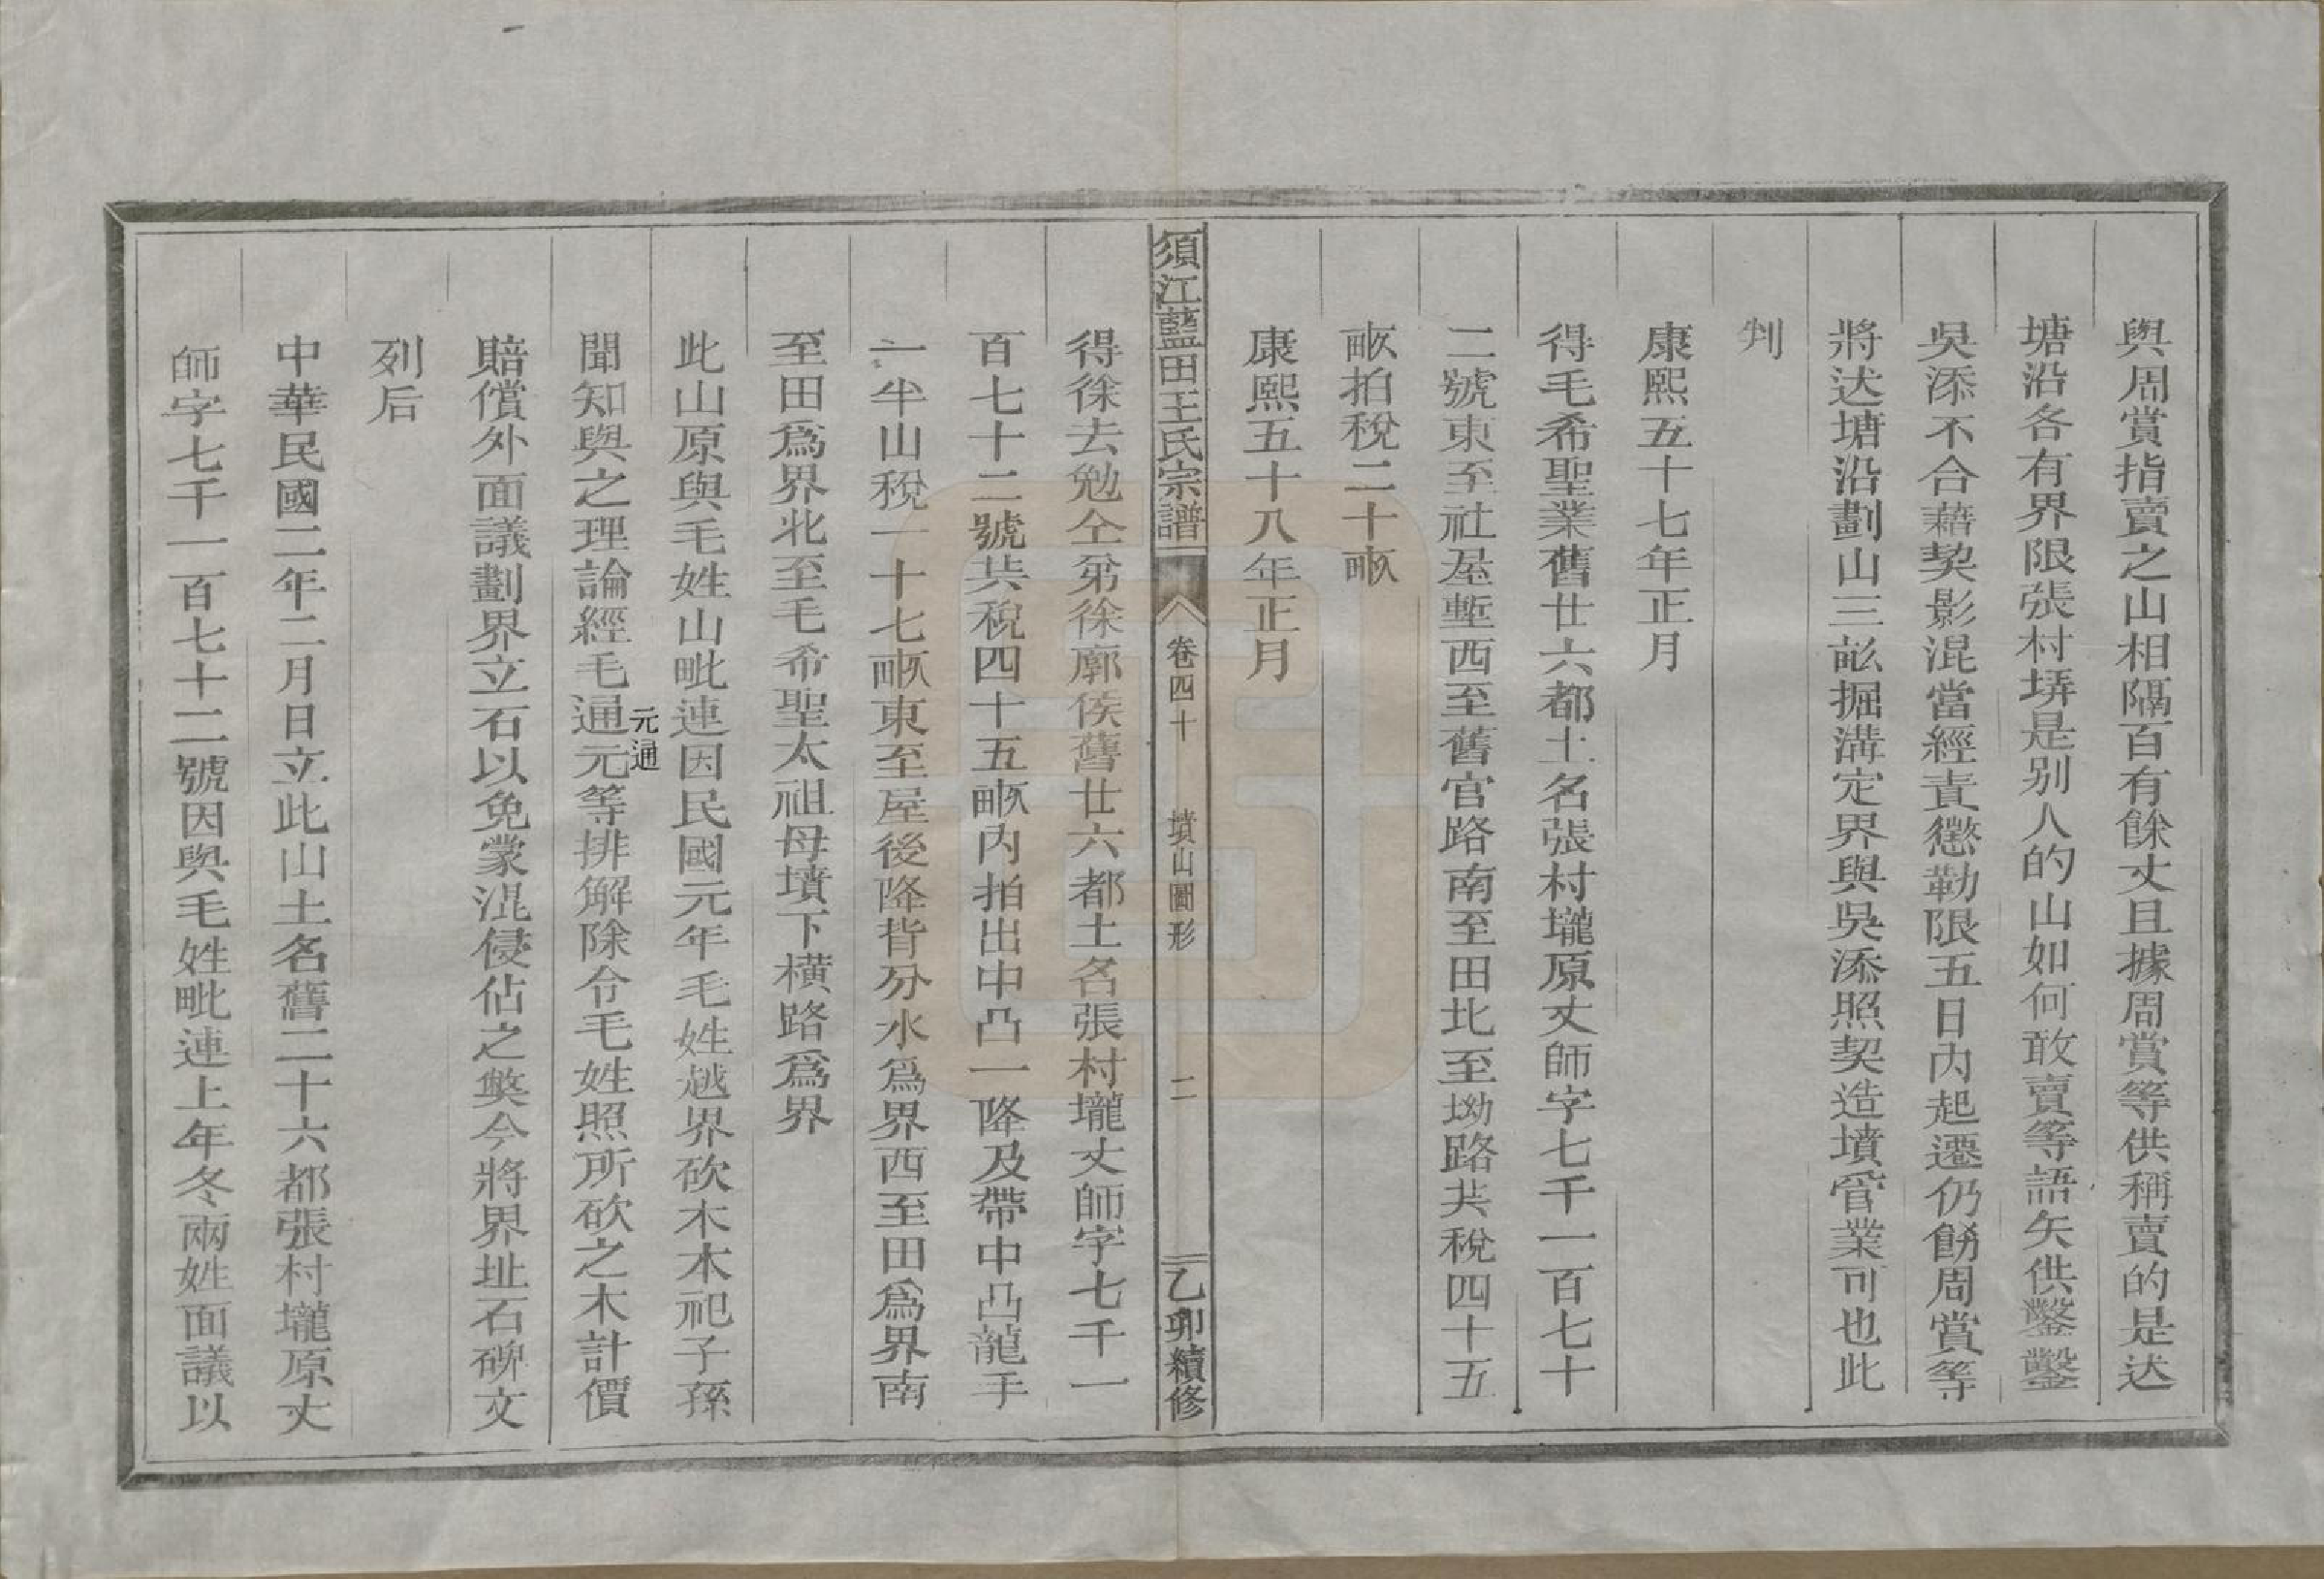 與周賞指賣之山相隔百有餘丈且據周賞等供稱賣的是汏
塘沿各有界限張村塝是别人的山如何敢賣等語矢供鑿鑿
吳添不合藉契影混當經責懲勒限五日內起遷仍餙周賞等
將汏塘沿劃山三畝掘溝定界與吳添照契造墳管業可也此
判
康熙五十七年正月
得毛希聖業舊廿六都土名張村壠原丈師字七千一百七十
二號東至社屋塹西至舊官路南至田北至坳路共稅四十五
畝拍稅二十畝
康熙五十八年正月
須江藍田王氏宗譜 卷四十 墳山圖形 二 乙卯續修
得徐去勉仝弟徐廓侯舊廿六都土名張村壠丈師字七千一
百七十二號共稅四十五畝內拍出中凸一降及帶中凸龍手
一半山稅一十七畝東至屋後降背分水爲界西至田爲界南
至田爲界北至毛希聖太祖母墳下横路爲界
此山原與毛姓山毗連因民國元年毛姓越界砍木木祀子孫
聞知與之理論經毛通元等排解除令毛姓照所砍之木計價
元通
賠償外面議劃界立石以免蒙混侵佔之獘今將界址石碑文
列后
中華民國二年二月日立此山土名舊二十六都張村壠原丈
師字七千一百七十二號因與毛姓毗連上年冬兩姓面議以